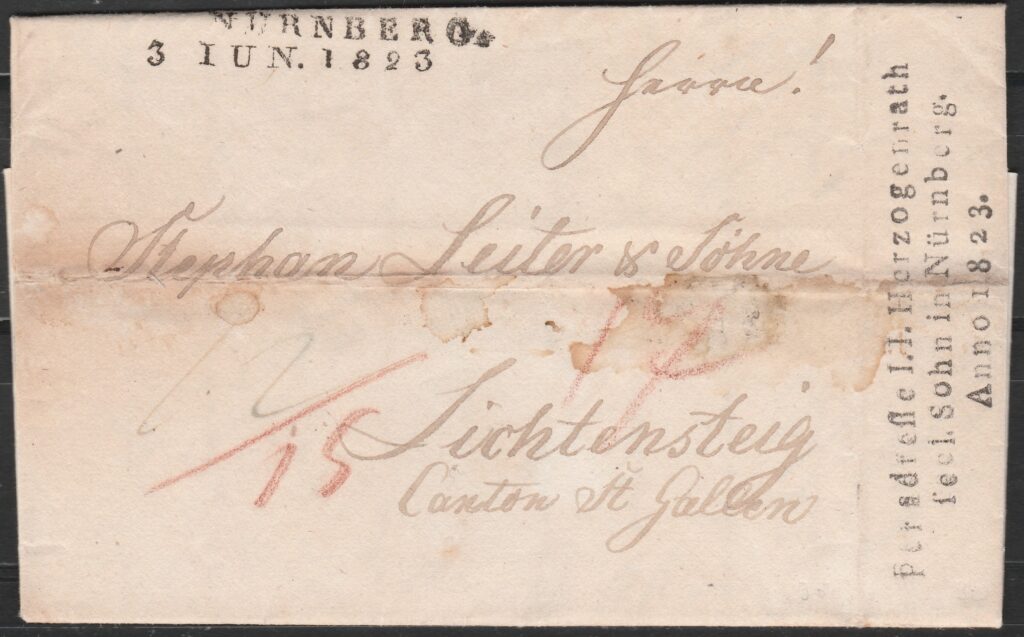 NÜRNBERG.
3 IUN. 1823
Herrn!
Stephan Leiter & Söhne
Lichtensteig
Canton St Gallen
15
peradresse I.I. Herzogenrath
seel. Sohn in Nürnberg.
Anno 1823.